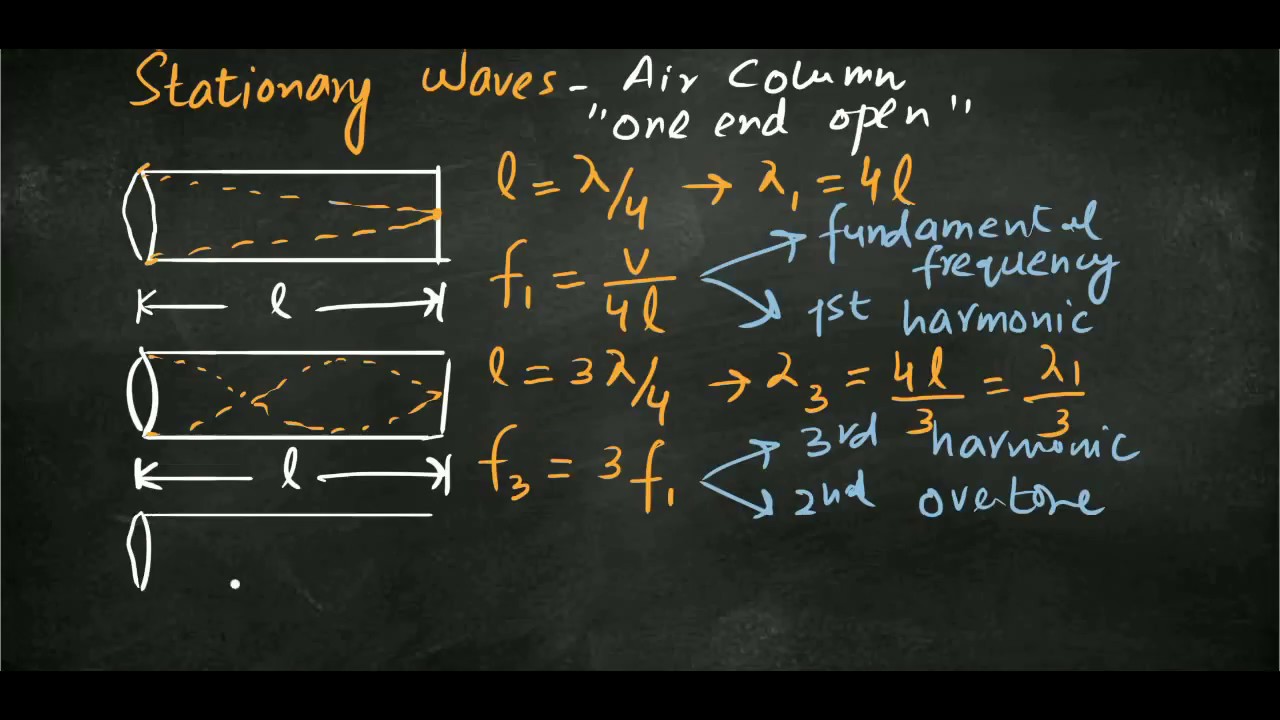 Stationary Waves - Air Column
"one end open"
l = λ/4 → λ₁ = 4l
f₁ = v/4l
fundamental frequency
1st harmonic
l
l = 3λ/4 → λ₃ = 4l/3 = λ1/3
f₃ = 3f₁
3rd harmonic
2nd overtone
l